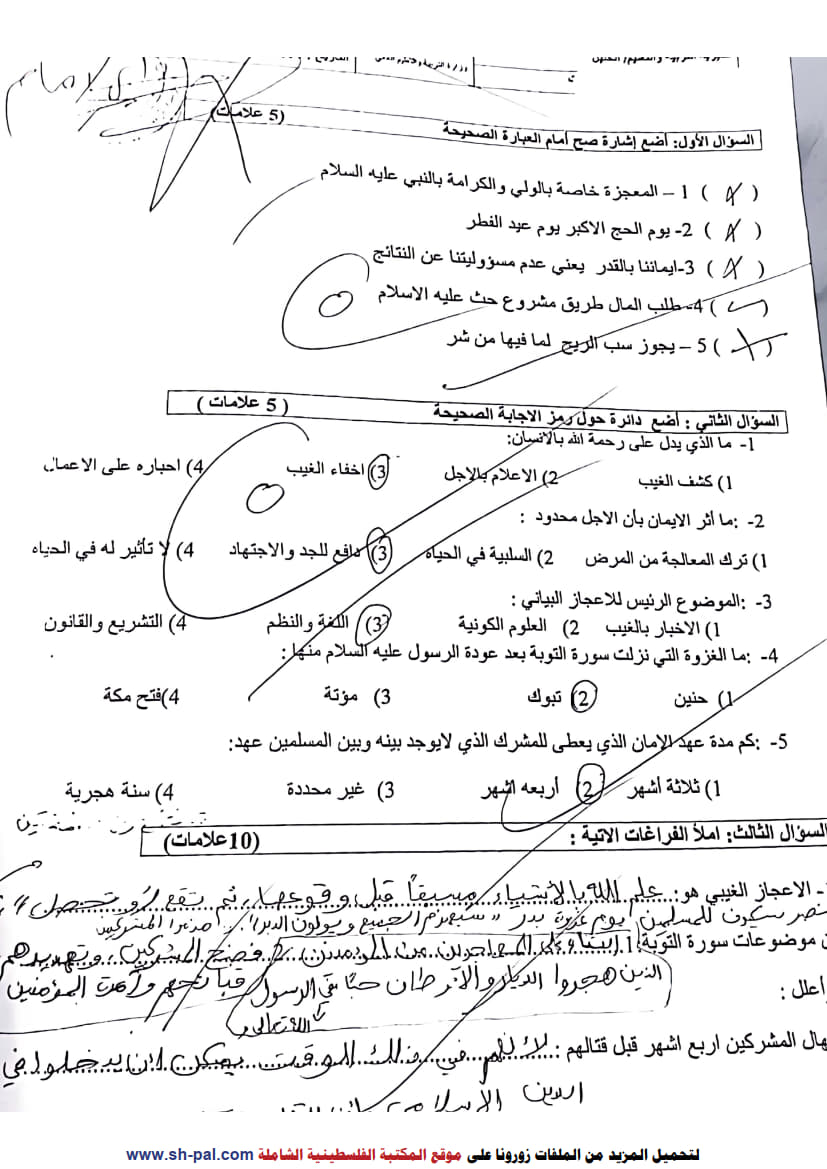 وزارة التربية والتعليم العالي
السؤال الأول: أضع إشارة صح أمام العبارة الصحيحة (5 علامات)
( X ) 1 – المعجزة خاصة بالولي والكرامة بالنبي عليه السلام
( X ) 2- يوم الحج الاكبر يوم عيد الفطر
( X ) 3-ايماننا بالقدر يعني عدم مسؤوليتنا عن النتائج
( ✓ ) 4- طلب المال طريق مشروع حث عليه الاسلام
( X ) 5 – يجوز سب الريح لما فيها من شر
السؤال الثاني : أضع دائرة حول رمز الاجابة الصحيحة (5 علامات )
1- ما الذي يدل على رحمة الله بالانسان:
1) كشف الغيب 2) الاعلام بالاجل 3) اخفاء الغيب 4) احباره على الاعمال
2- :ما أثر الايمان بأن الاجل محدود :
1) ترك المعالجة من المرض 2) السلبية في الحياه 3) دافع للجد والاجتهاد 4) لا تأثير له في الحياه
3- :الموضوع الرئيس للاعجاز البياني :
1) الاخبار بالغيب 2) العلوم الكونية 3) اللغة والنظم 4) التشريع والقانون
4- :ما الغزوة التي نزلت سورة التوبة بعد عودة الرسول عليه السلام منها :
1) حنين 2) تبوك 3) مؤتة 4)فتح مكة
5- :كم مدة عهد الامان الذي يعطى للمشرك الذي لايوجد بينه وبين المسلمين عهد:
1) ثلاثة أشهر 2) أربعه اشهر 3) غير محددة 4) سنة هجرية
السؤال الثالث: املأ الفراغات الاتية : (10علامات)
- الاعجاز الغيبي هو: علم الله بالأشياء مسبقاً قبل وقوعها، ثم تقع
للمسلمين يوم غزوة بدر "سيهزم الجمع ويولون الدبر"
ن موضوعات سورة التوبة: 1. المهاجرين من المؤمنين 2. فضح المشركين وتهديدهم
الذين هجروا الديار حبًا في الرسول
الله تعالى
أعلل :
هال المشركين اربع اشهر قبل قتالهم : لأنهم في ذلك الوقت يمكن ان يدخلوا في
الدين الإسلامي
لتحميل المزيد من الملفات زورونا على موقع المكتبة الفلسطينية الشاملة www.sh-pal.com